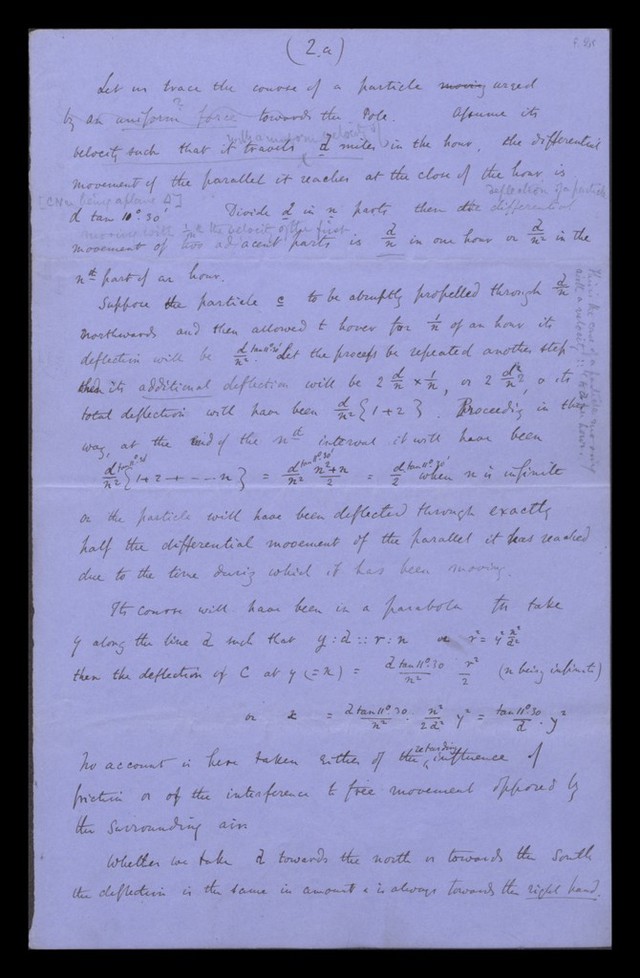 (2.a)
Let us trace the course of a particle moving urged
by an uniform force towards the Pole. Assume its
with a uniform velocity of
velocity such that it travels d miles in the hour, the differential
movement of the parallel it reaches at the close of the hour is
[CNn being a plane Δ] deflection of a particle
d tan 11° 30' Divide d in n parts then the differential
moving with 1/nth the velocity of the first
movement of two adjacent parts is d/n in one hour or d/n² in the
nth part of an hour.
Suppose the particle c to be abruptly propelled through d/n
northwards and then allowed to hover for 1/n of an hour its
deflection will be d tan 11° 30'/n². Let the process be repeated another step
its additional deflection will be 2 d/n × 1/n, or 2 d/n², & its
total deflection will have been d/n² {1+2}. Proceeding in this
way, at the end of the nth interval it will have been
d tan 11° 30'/n² {1+2+----n} = d tan 11° 30'/n² n²+n/2 = d tan 11° 30'/2 when n is infinite
or the particle will have been deflected through exactly
half the differential movement of the parallel it has reached
due to the time during which it has been moving.
Its course will have been in a parabola for take
y along the line d such that y : d :: r : n or r² = y² n²/d²
then the deflection of C at y (=x) = d tan 11° 30/n² r²/2 (n being infinite)
or x = d tan 11° 30/n² . n²/2d² y² = tan 11° 30/d . y²
No account is here taken either of the retarding influence of
friction or of the interference to free movement opposed by
the surrounding air.
Whether we take d towards the north or towards the south
the deflection is the same in amount & is always towards the right hand.